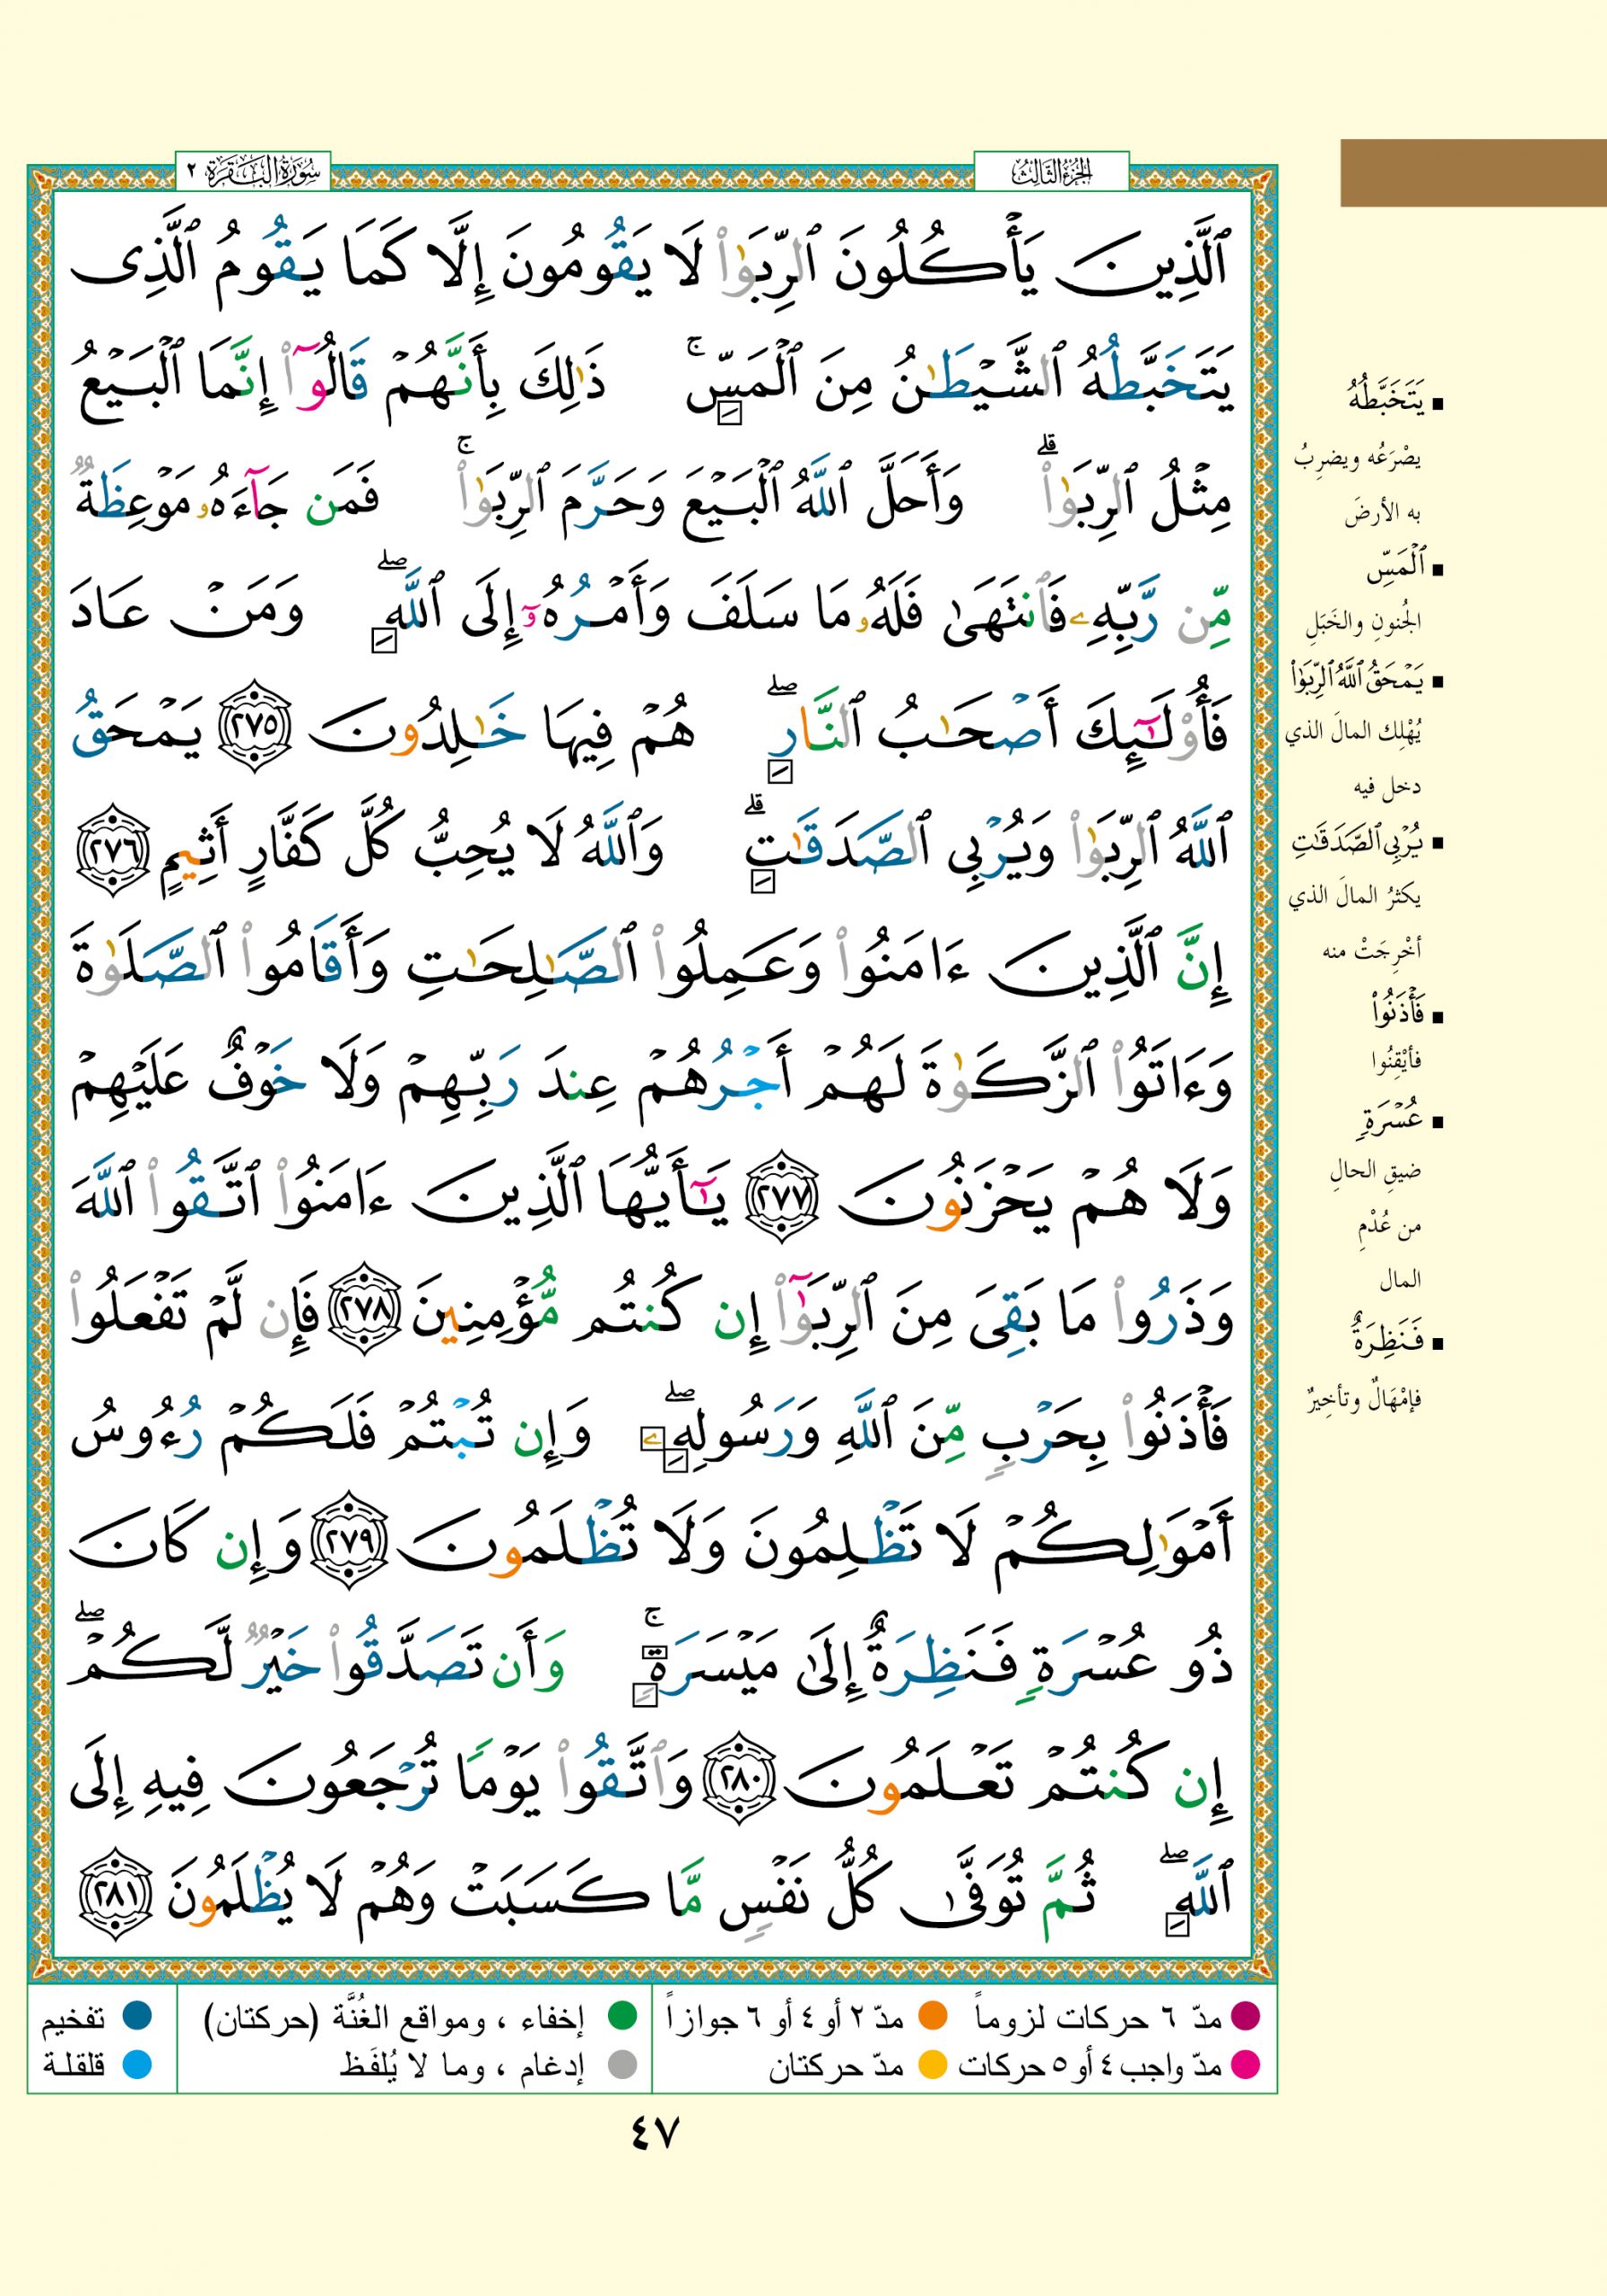 الجزء الثالث
سورة البقرة ٢
ٱلَّذِينَ يَأۡكُلُونَ ٱلرِّبَوٰاْ لَا يَقُومُونَ إِلَّا كَمَا يَقُومُ ٱلَّذِى
يَتَخَبَّطُهُ ٱلشَّيۡطَٰنُ مِنَ ٱلۡمَسِّۚ ذَٰلِكَ بِأَنَّهُمۡ قَالُوٓاْ إِنَّمَا ٱلۡبَيۡعُ
مِثۡلُ ٱلرِّبَوٰاْۗ وَأَحَلَّ ٱللَّهُ ٱلۡبَيۡعَ وَحَرَّمَ ٱلرِّبَوٰاْۚ فَمَن جَآءَهُۥ مَوۡعِظَةٌ
مِّن رَّبِّهِۦ فَٱنتَهَىٰ فَلَهُۥ مَا سَلَفَ وَأَمۡرُهُۥٓ إِلَى ٱللَّهِۖ وَمَنۡ عَادَ
فَأُوْلَٰٓئِكَ أَصۡحَٰبُ ٱلنَّارِۖ هُمۡ فِيهَا خَٰلِدُونَ ٢٧٥ يَمۡحَقُ
ٱللَّهُ ٱلرِّبَوٰاْ وَيُرۡبِى ٱلصَّدَقَٰتِۗ وَٱللَّهُ لَا يُحِبُّ كُلَّ كَفَّارٍ أَثِيمٍ ٢٧٦
إِنَّ ٱلَّذِينَ ءَامَنُواْ وَعَمِلُواْ ٱلصَّٰلِحَٰتِ وَأَقَامُواْ ٱلصَّلَوٰةَ
وَءَاتَوُاْ ٱلزَّكَوٰةَ لَهُمۡ أَجۡرُهُمۡ عِندَ رَبِّهِمۡ وَلَا خَوۡفٌ عَلَيۡهِمۡ
وَلَا هُمۡ يَحۡزَنُونَ ٢٧٧ يَٰٓأَيُّهَا ٱلَّذِينَ ءَامَنُواْ ٱتَّقُواْ ٱللَّهَ
وَذَرُواْ مَا بَقِىَ مِنَ ٱلرِّبَوٰٓاْ إِن كُنتُم مُّؤۡمِنِينَ ٢٧٨ فَإِن لَّمۡ تَفۡعَلُواْ
فَأۡذَنُواْ بِحَرۡبٍ مِّنَ ٱللَّهِ وَرَسُولِهِۦۖ وَإِن تُبۡتُمۡ فَلَكُمۡ رُءُوسُ
أَمۡوَٰلِكُمۡ لَا تَظۡلِمُونَ وَلَا تُظۡلَمُونَ ٢٧٩ وَإِن كَانَ
ذُو عُسۡرَةٍ فَنَظِرَةٌ إِلَىٰ مَيۡسَرَةٍۚ وَأَن تَصَدَّقُواْ خَيۡرٌ لَّكُمۡۖ
إِن كُنتُمۡ تَعۡلَمُونَ ٢٨٠ وَٱتَّقُواْ يَوۡمًا تُرۡجَعُونَ فِيهِ إِلَى
ٱللَّهِۖ ثُمَّ تُوَفَّىٰ كُلُّ نَفۡسٍ مَّا كَسَبَتۡ وَهُمۡ لَا يُظۡلَمُونَ ٢٨١
▪ يَتَخَبَّطُهُ
يصْرَعُه ويضرِبُ
به الأرضَ
▪ ٱلۡمَسِّ
الجُنونِ والخَبَلِ
▪ يَمۡحَقُ ٱللَّهُ ٱلرِّبَوٰاْ
يُهْلِك المالَ الذي
دخل فيه
▪ يُرۡبِى ٱلصَّدَقَٰتِ
يكثرُ المالَ الذي
أخْرِجَتْ منه
▪ فَأۡذَنُواْ
فأيْقِنُوا
▪ عُسۡرَةٍ
ضيقِ الحالِ
من عُدْمِ
المال
▪ فَنَظِرَةٌ
فإمْهَالٌ وتأخِيرٌ
مدّ ٦ حركات لزوماً ● مدّ ٢ أو ٤ أو ٦ جوازاً ● إخفاء ، ومواقع الغُنَّة (حركتان) ● تفخيم
مدّ واجب ٤ أو ٥ حركات ● مدّ حركتان ● إدغام ، وما لا يُلفَظ ● قلقلة
٤٧